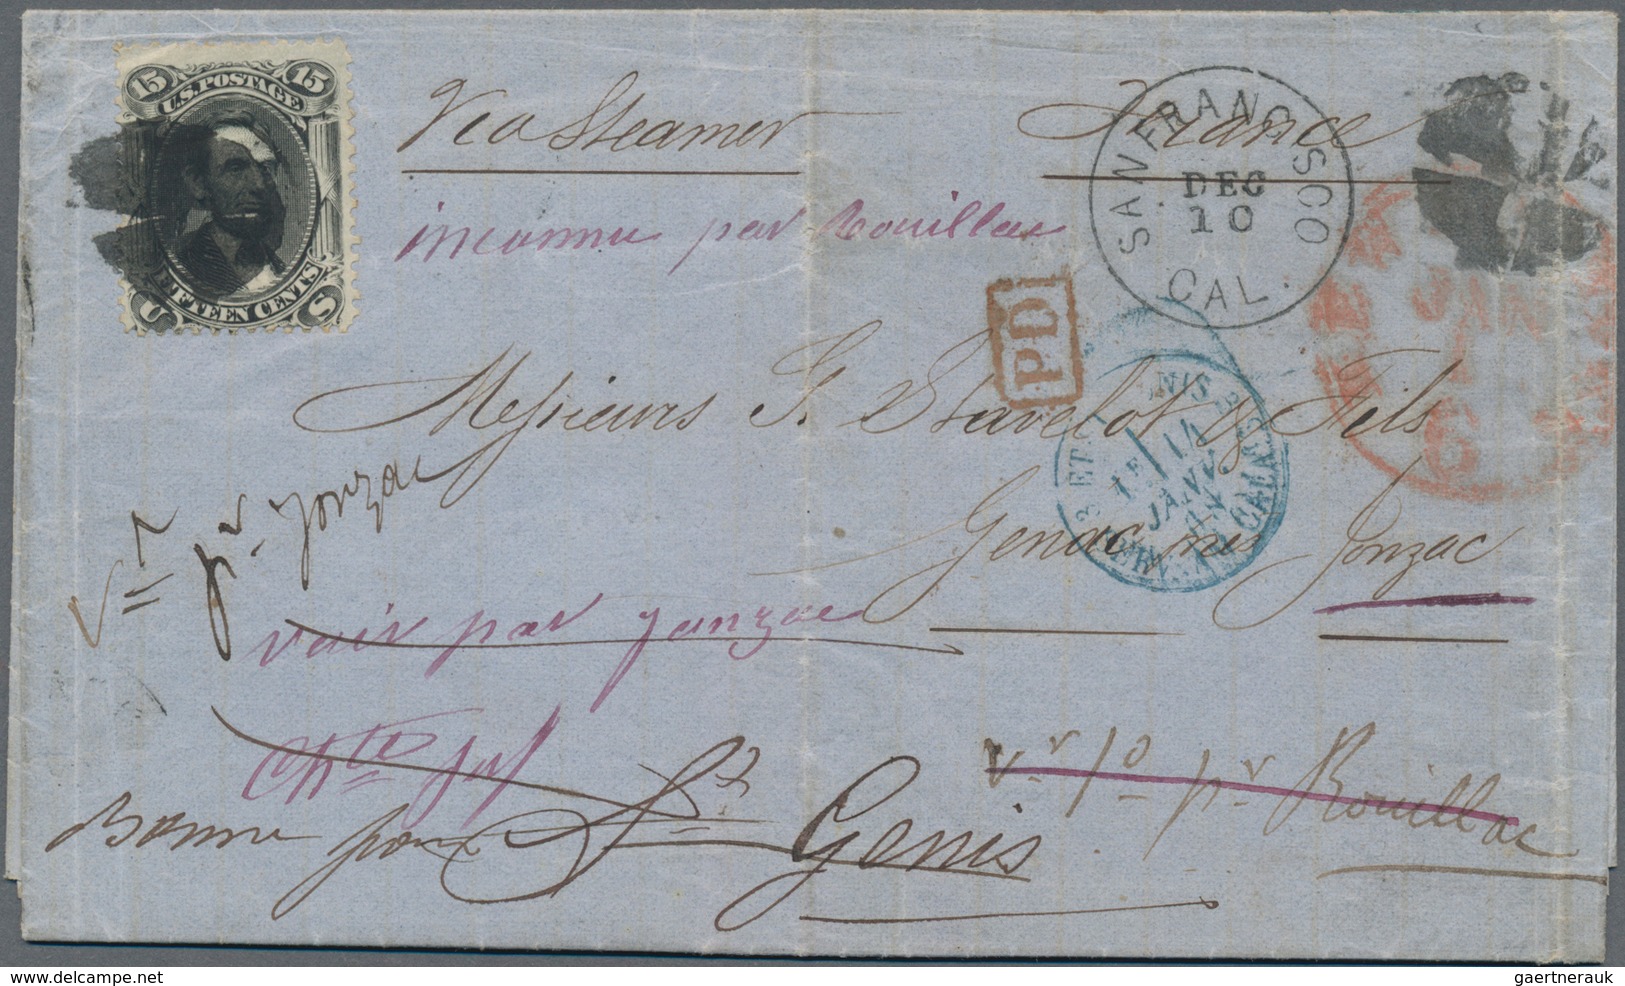 15 15
U.S. POSTAGE
FIFTEEN CENTS
U S
Via Steamer France
SAN FRANCISCO
DEC
10
CAL.
inconnu par Rouillac
PD
JAN
6
Messieurs Stavelot & Fils
14
JANV.
CALAIS
pr. Jonzac
Genac près Jonzac
voir par Jonzac
vr po pr Rouillac
Bonne pour St Genis
delcampe.net
gaertnerauk